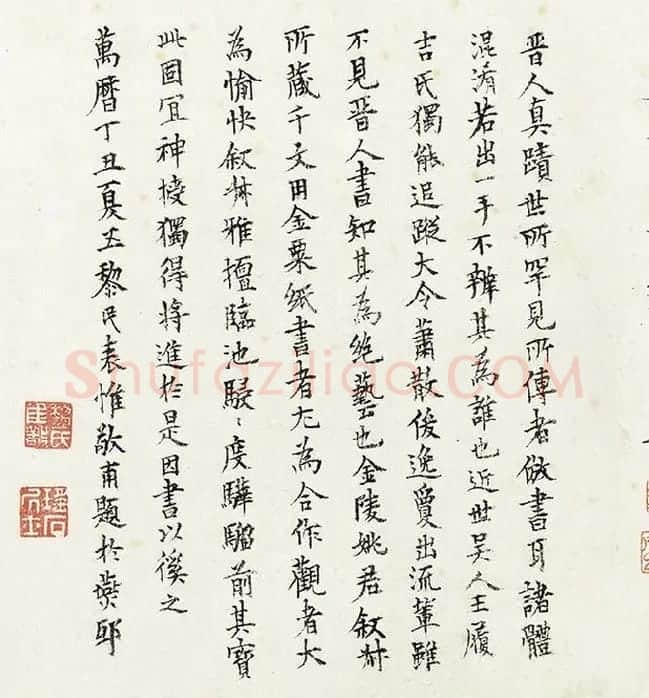 晉人真蹟世所罕見所傳者倣書耳諸體
混淆若出一手不辨其為誰也近世吳人王履
吉氏獨能追蹤大令蕭散俊逸敻出流輩雖
不見晉人書知其為絕藝也金陵姚君叙
所藏千文用金粟紙書者尤為合作觀者大
為愉快叙雅擅臨池駸〻度驊騮前其寶
此固宜神授獨得將進於是因書以徯之
萬曆丁丑夏五黎民表惟敬甫題於燕邸
黎氏惟敬
瑤石山人
Shufaziliao.COM